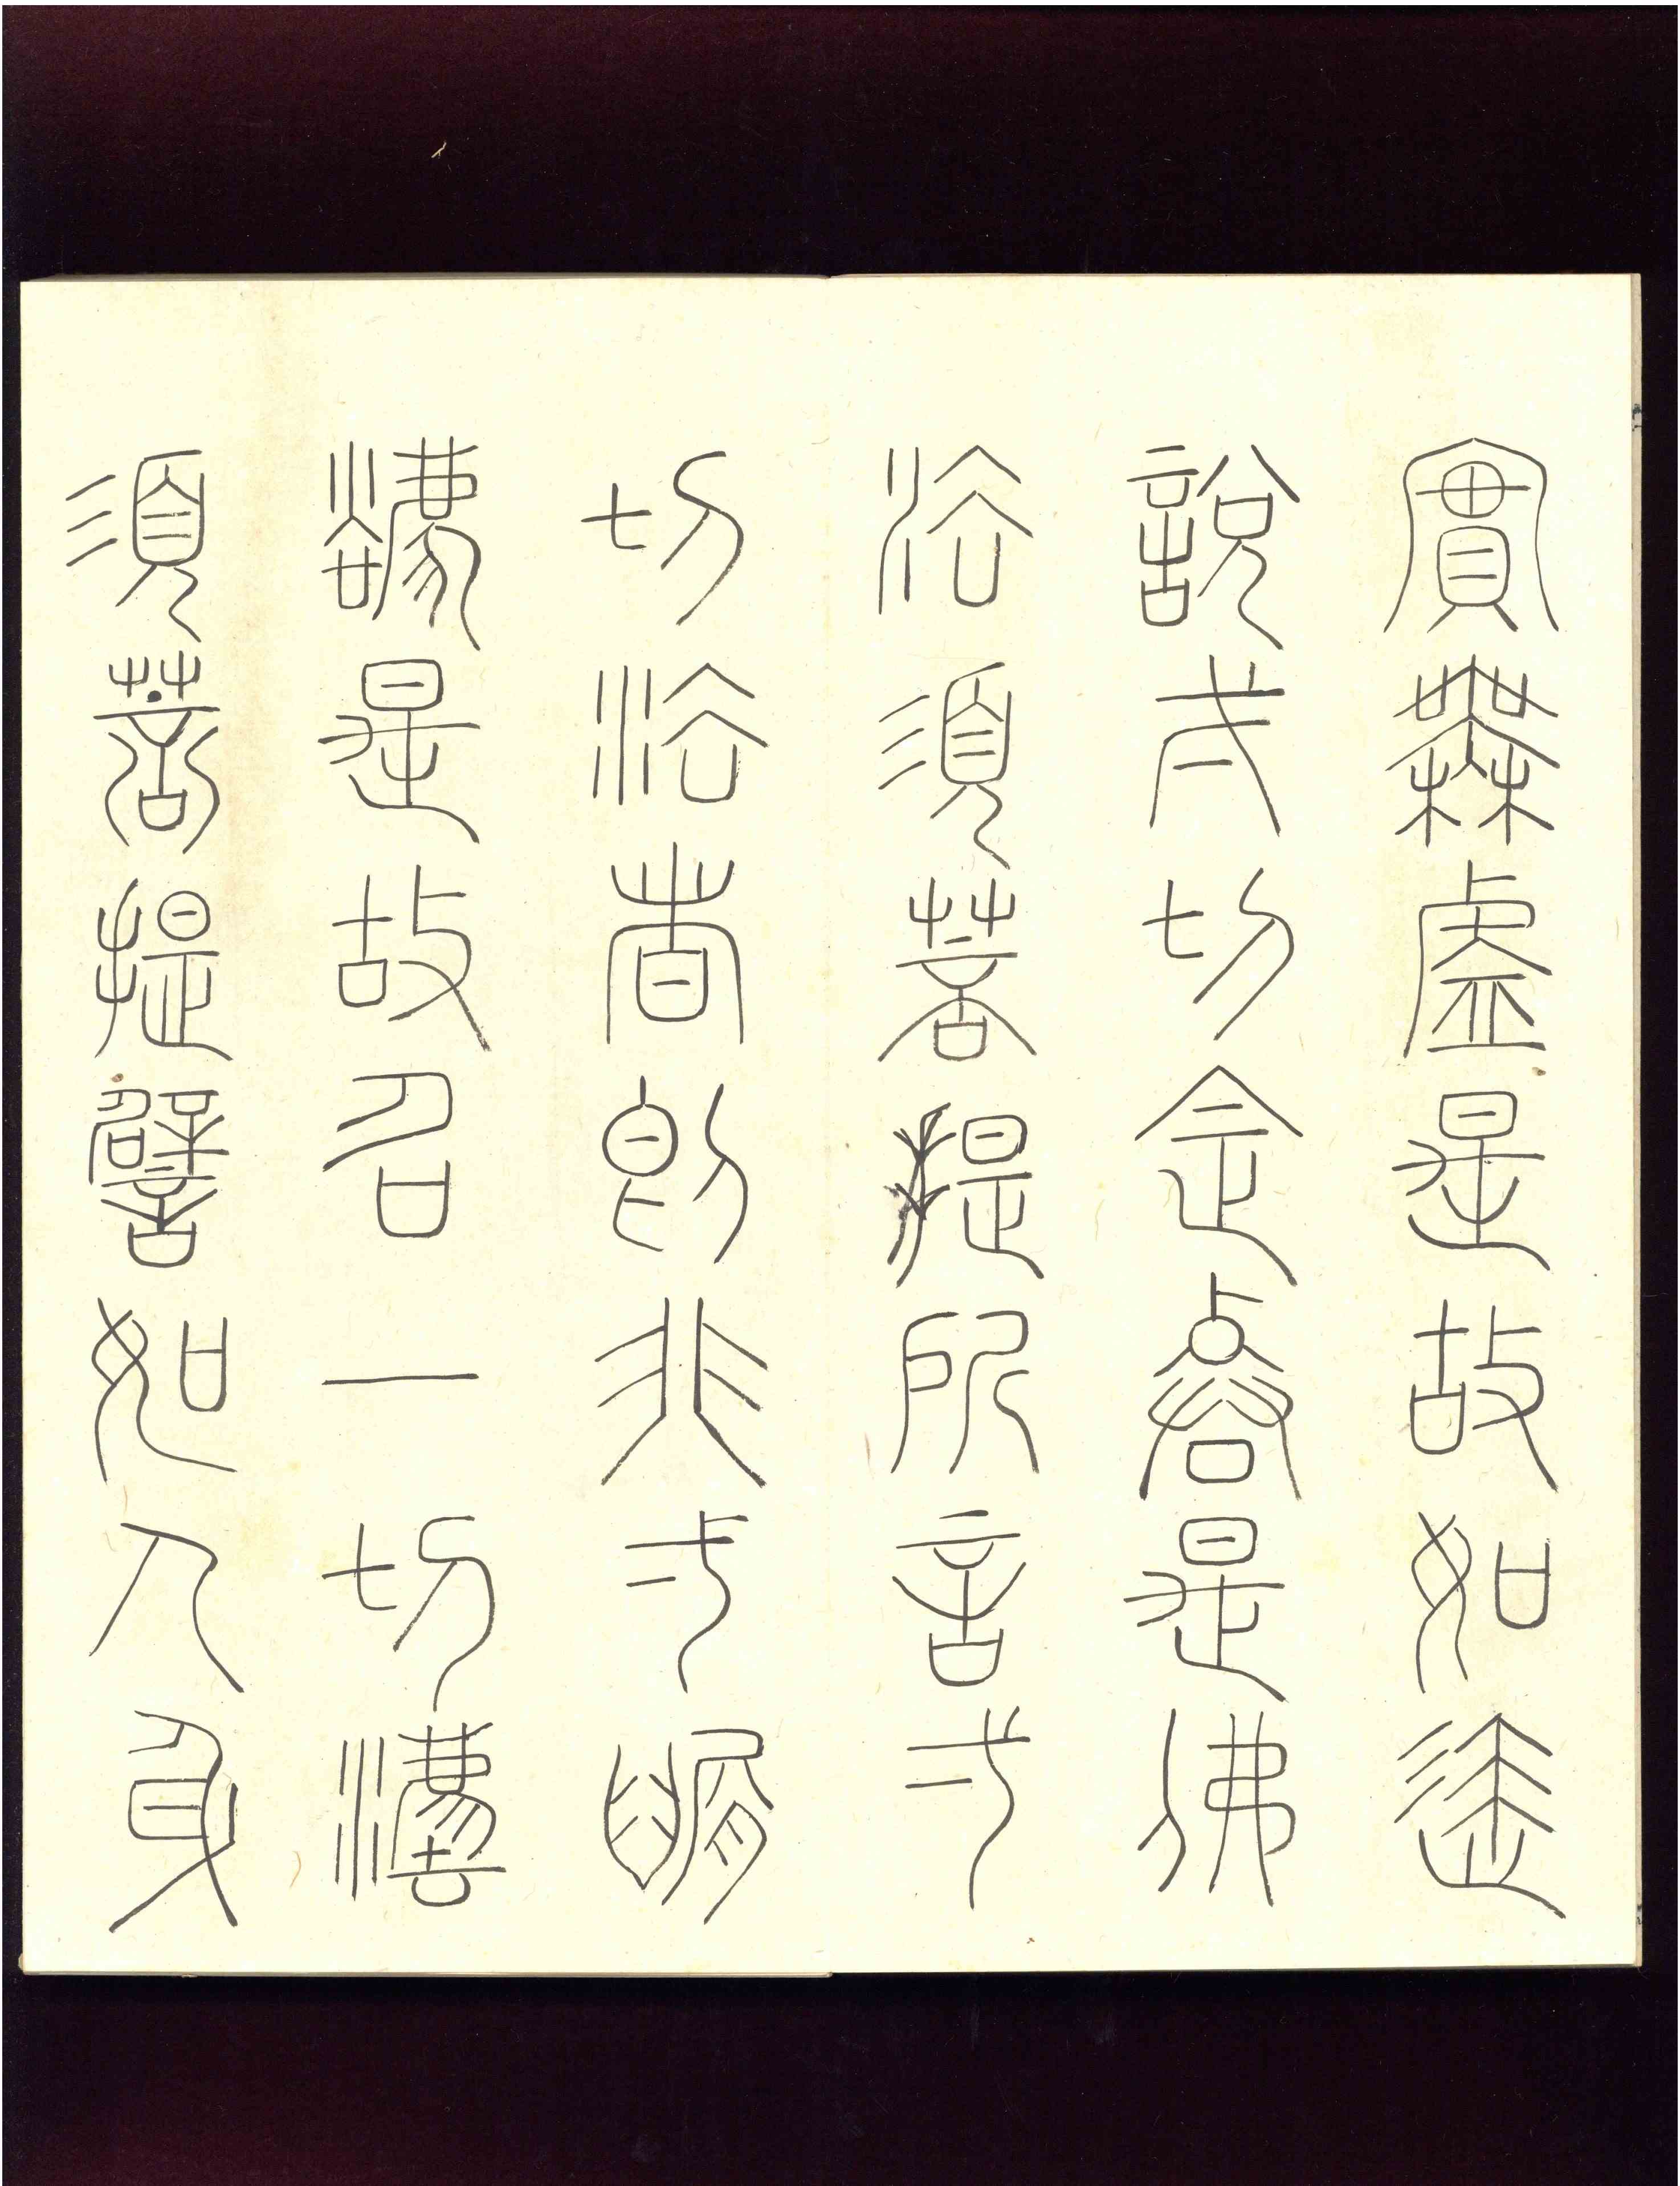 實無虛是故如來
說一切法皆是佛
法須菩提所言一
切法者即非一切
法是故名一切法
須菩提譬如人身